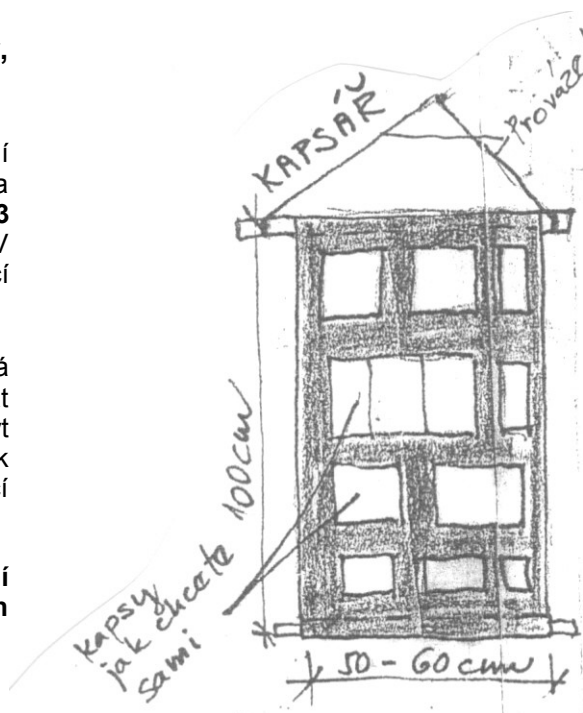 ,
í
a
3
/
cí
á
t
yt
k
cí
í
m
KAPSÁŘ
Provaze
100cm
kapsy
jak chcete
sami
50 - 60 cm